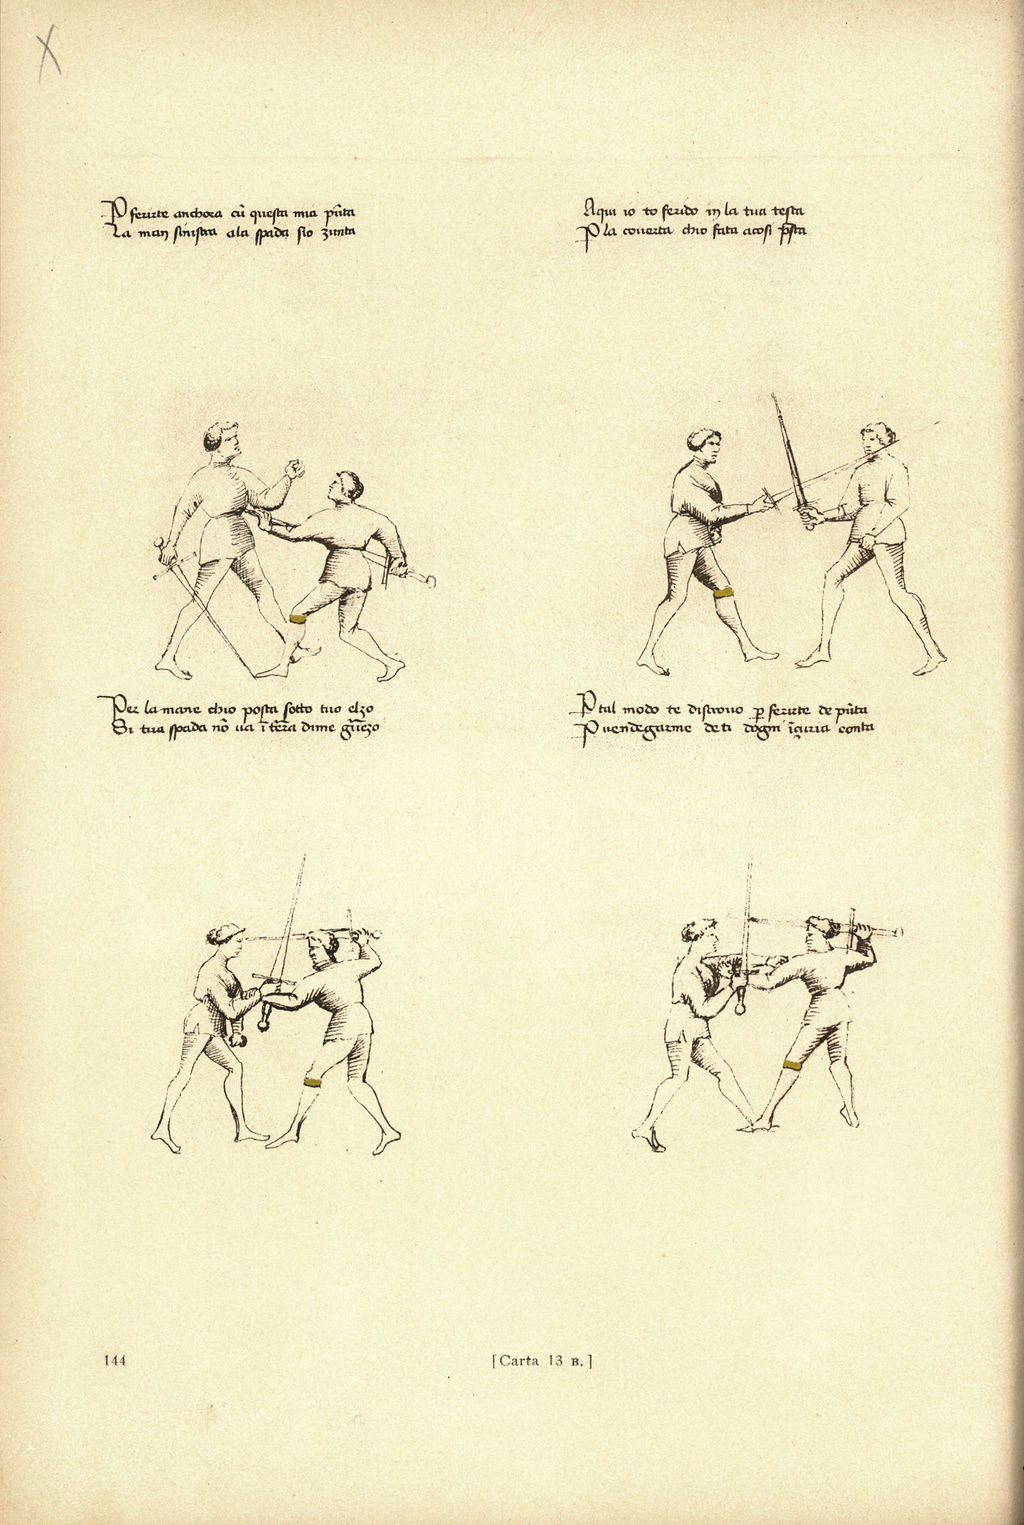 P ferirte anchora cū questa mia pūta
La man sinistra ala spada sio zunta
Aqui io to ferido in la tua testa
P la coverta chio fata acosi psta
Per la mane chio posta sotto tuo elzo
Si tua spada nō va ī tera dime guerzo
P tal modo te discrovo p ferirte de pūta
P vendegarme de ti dogn īguria conta
144
[Carta 13 B.]